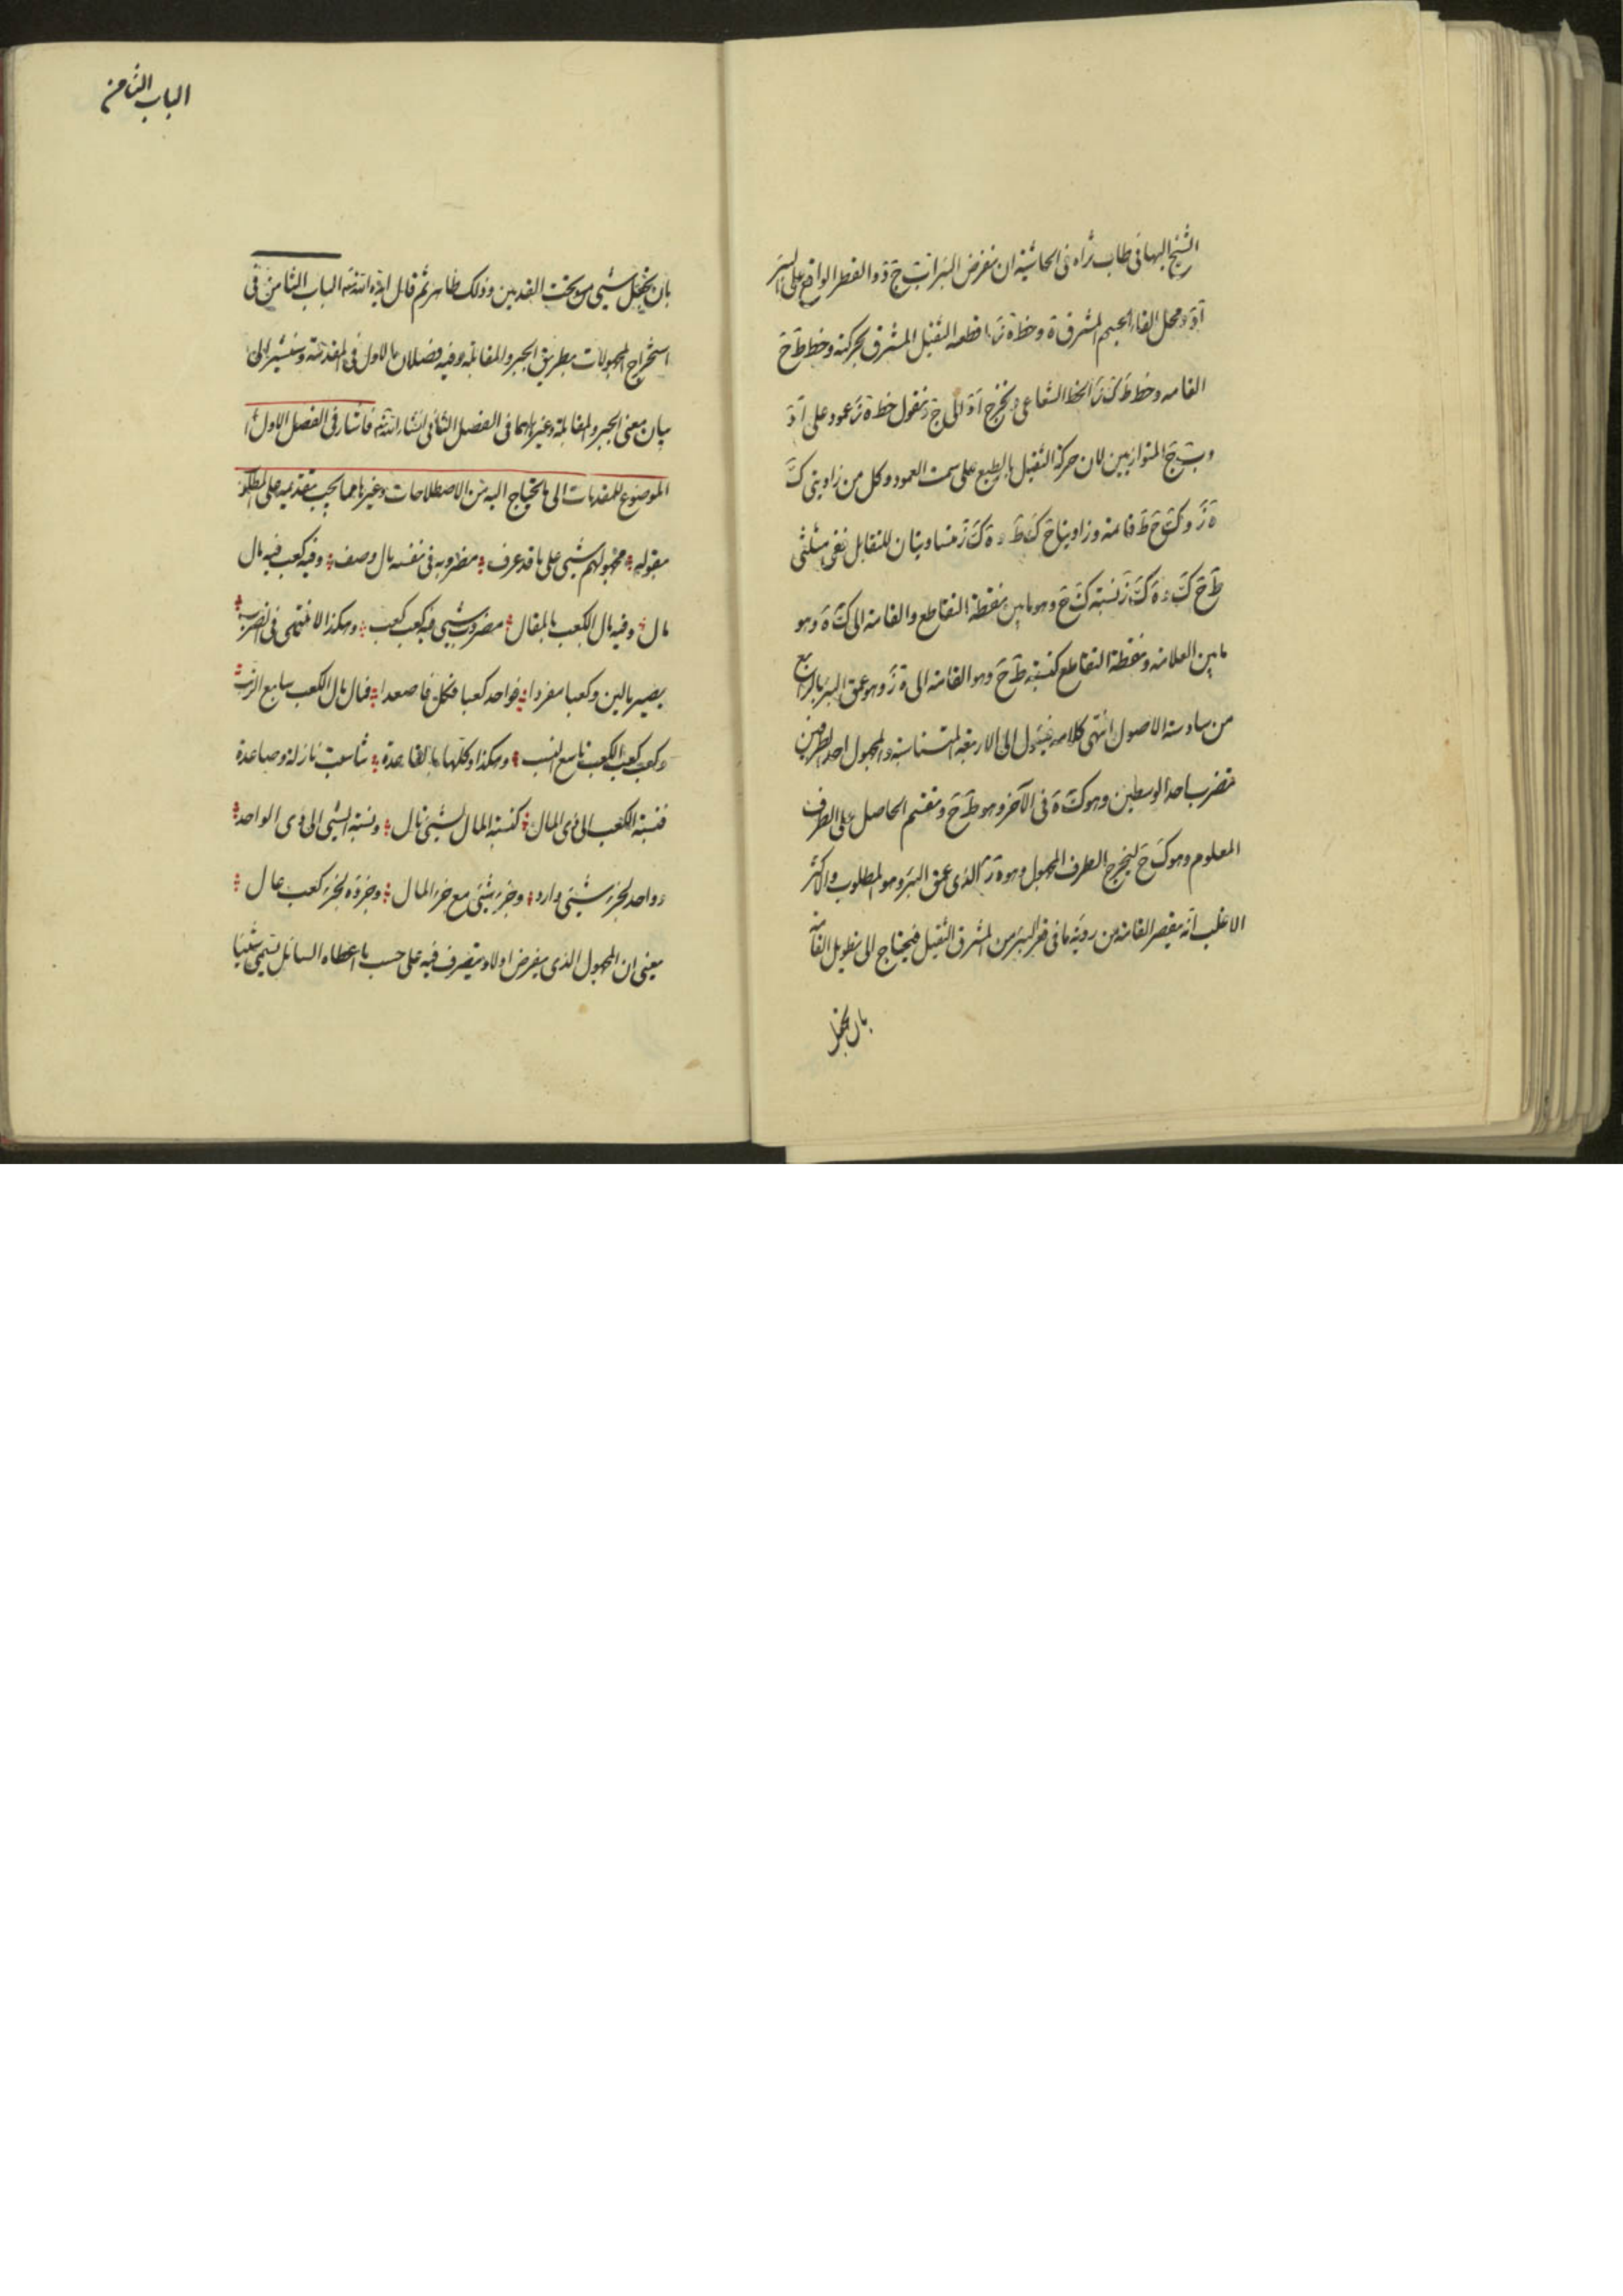 الشيخ البهائى طاب ثراه فى الحاشية ان نفرض البئر ا ب ج د والقطر الواقع على البئر
ا د ومحل القاء الجسم المشرق ه وخط ه ز ما قطعه الثقيل المشرق بحركته وخط ط ح
القامه وخط ط ك ز الخط الشعاعى ونخرج ا د الى ح فنقول خط ه ز عمود على ا د
و ب ج المتوازيين لان حركة الثقيل بالطبع على سمت العمود وكل من زاويتى ك
ه ز و ك ح ط قائمه وزاويتا ح ك ط و ه ك ز متساويتان للتقابل ففى مثلثى
ط ح ك و ه ك ز نسبة ك ح وهو ما بين نقطة التقاطع والقامة الى ك ه وهو
ما بين العلامه ونقطة التقاطع كنسبة ط ح وهو القامه الى ه ز وهو عمق البئر بالرابع
من سادسة الاصول انتهى كلامه فيئول الى الاربعة المتناسبة والمجهول احد الطرفين
فنضرب احد الوسطين وهو ك ه فى الآخر وهو ط ح ونقسم الحاصل على الطرف
المعلوم وهو ك ح ليخرج الطرف المجهول وهو ه ز الذى عمق البئر وهو المطلوب والاكثر
الاغلب انه يقصر القامة من روية ما فى قعر البئر من المشرق الثقيل فيحتاج الى تطويل القامة
بان يجعل
الباب الثامن
بان يجعل شيئى مو تحت القدمين وذلك ظاهر ثم قال ايده الله الباب الثامن فى
استخراج المجهولات بطريق الجبر والمقابلة وفيه فصلان الاول فى المقدمة وسنشير الى
بيان معنى الجبر والمقابلة وغيرهما فى الفصل الثانى انشاء الله فاشار فى الفصل الاول
الموضوع للمقدمات الى ما يحتاج اليه من الاصطلاحات وغيرها مما يجب تقديمه على المطلوب
بقوله مجهولهم شيئى على ما قد عرف مضروبه فى نفسه مال وصف وفيه كعب فيه مال
مال وفيه مال الكعب بالمقال مضروب شيئى فيه كعب كعب وهكذا لا ننتهى فى الضرب
يصير مالين وكعبا مفردا فواحد كعبا فكل فاصعدا فمال مال الكعب سابع الرتب
وكعب كعب الكعب تاسع النسب وهكذا وكلها بالقاعدة تناسبت نازلة وصاعدة
فنسبة الكعب الى ذى المال كنسبة المال لشيئى تال ونسبة الشيئى الى ذى الواحد
وواحد لجزء شيئى وارد وجزء شيئى مع جزء المال وجزؤه لجزء كعب عال
يعنى ان المجهول الذى يفرض اولا ويتصرف فيه على حسب ما اعطاه السائل يسمى شيئا